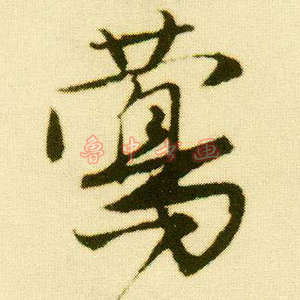 鶯
鲁中书画